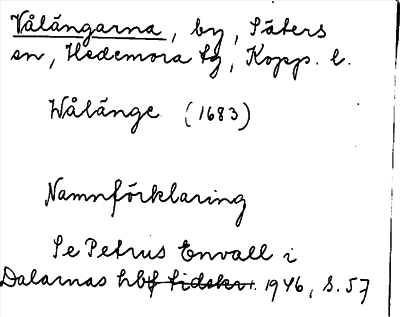 Vålängarna, by, Säters
sn, Hedemora tg, Kopp. l.
Wålänge (1683)
Namnförklaring
Se Petrus Envall i
Dalarnas hbf tidskr. 1946, s. 57